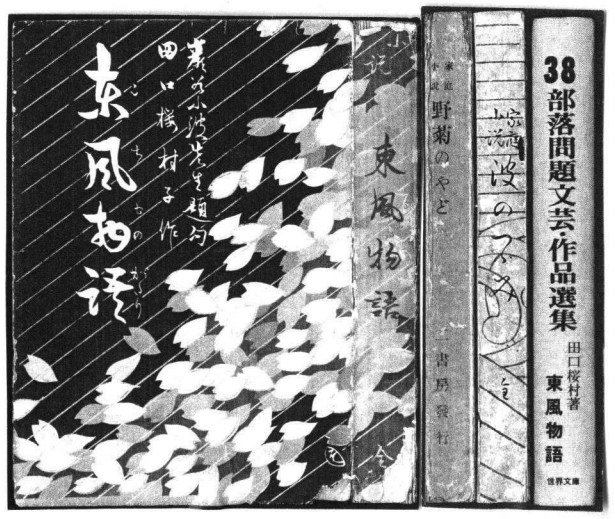 巌谷小波先生題句
田口桜村子作
東風物語
小説
東風物語
全
家庭
小説
野菊のやど
一書房發行
家庭
小説
波の
全
38
部落問題文芸・作品選集
田口桜村著
東風物語
世界文庫